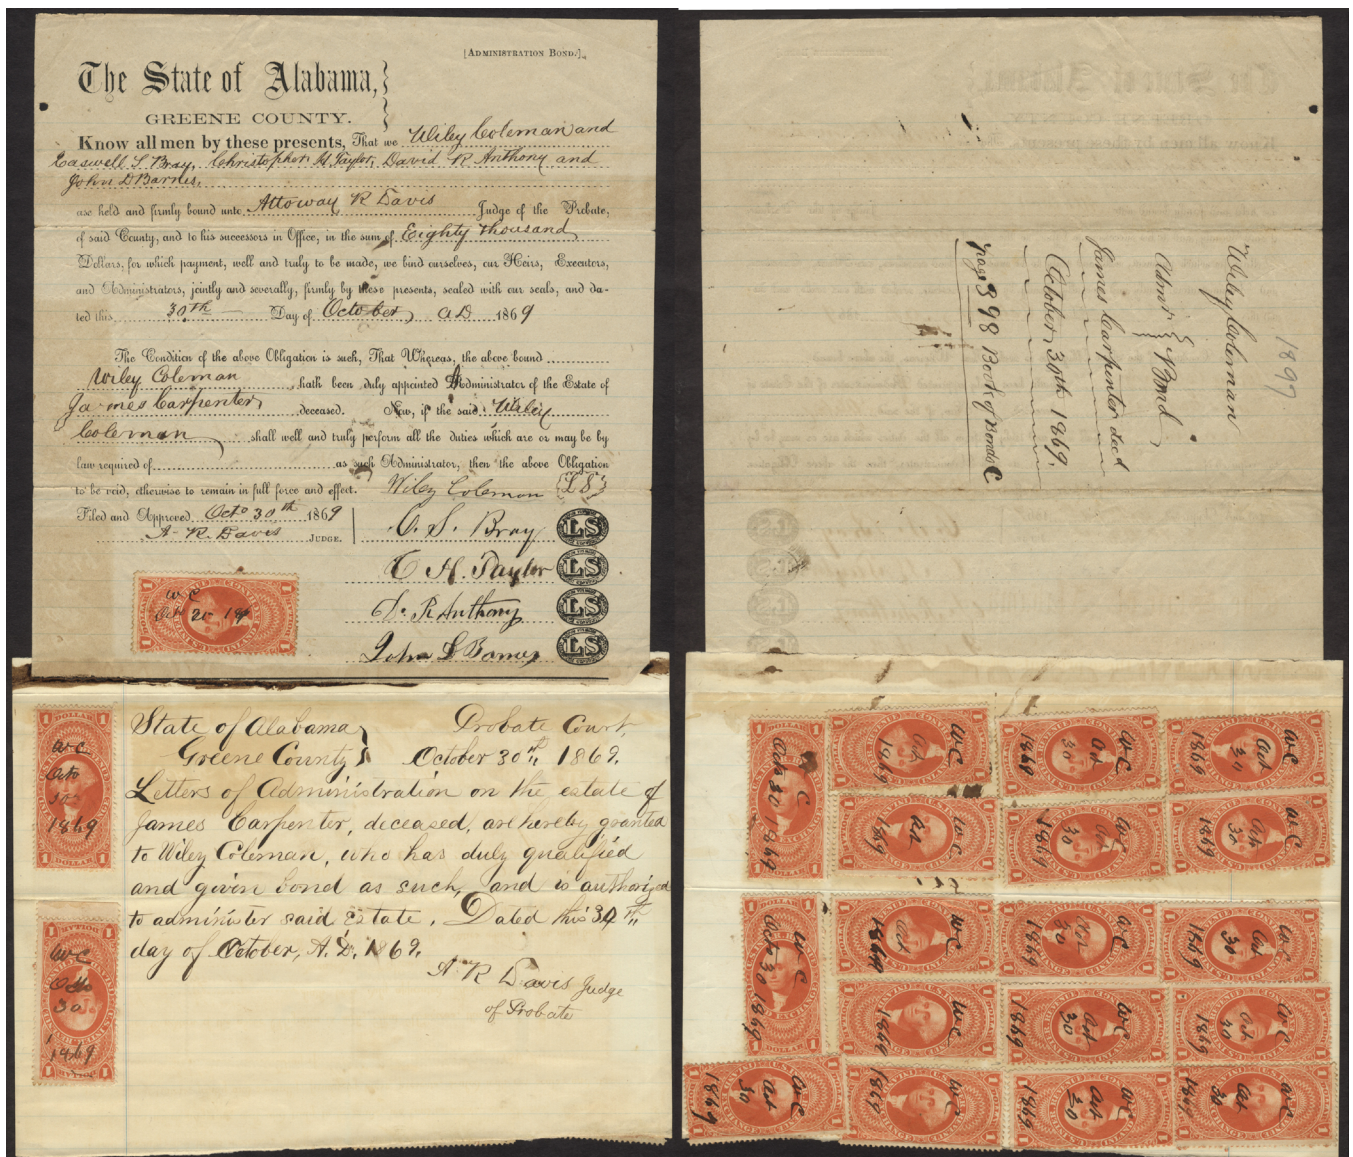 [ADMINISTRATION BOND.]
The State of Alabama,
GREENE COUNTY.
Know all men by these presents, That we Wiley Coleman and
Caswell S Bray, Christopher H Taylor, David R Anthony and
John D Barnes,
are held and firmly bound unto Attoway R Davis Judge of the Probate,
of said County, and to his successors in Office, in the sum of Eighty thousand
Dollars, for which payment, well and truly to be made, we bind ourselves, our Heirs, Executors,
and Administrators, jointly and severally, firmly by these presents, sealed with our seals, and da-
ted this 30th Day of October, AD 1869
The Condition of the above Obligation is such, That Whereas, the above bound
Wiley Coleman hath been duly appointed Administrator of the Estate of
James Carpenter deceased. Now, if the said Wiley
Coleman shall well and truly perform all the duties which are or may be by
law required of as such Administrator, then the above Obligation
to be void, otherwise to remain in full force and effect. Wiley Coleman {LS}
Filed and Approved Octo 30th 1869 C. S. Bray LS
A. R. Davis JUDGE.
C H Taylor LS
D. R Anthony LS
John D Barnes LS
1 1
WC
Oct 20 18
1 1
1897
Wiley Coleman
Admr } Bond
James Carpenter decd
October 30th 1869.
Page 398 Book of Bonds C
1 DOLLAR 1
WC
Octo
30
1869
1 DOLLAR 1
1 DOLLAR 1
WC
Octo
30
1869
1 DOLLAR 1
State of Alabama} Probate Court,
Greene County} October 30th, 1869.
Letters of Administration on the estate of
James Carpenter, deceased, are hereby granted
to Wiley Coleman, who has duly qualified
and given bond as such, and is authorized
to administer said Estate. Dated this 30th
day of October, A.D. 1869.
A R Davis Judge
of Probate
W C
Octo 30 1869
WC
Oct
1869
WC
Oct
30
1869
WC
Oct
30
1869
WC
Oct
1869
WC
Oct
30
1869
WC
Oct
30
1869
W C
Oct 30 1869
WC
Oct
1869
WC
Oct
30
1869
WC
Oct
30
1869
WC
1869
WC
Oct
30
1869
WC
Oct
30
1869
WC
Oct
30
1869
WC
1869
WC
Oct
30
1869
WC
Oct
30
1869